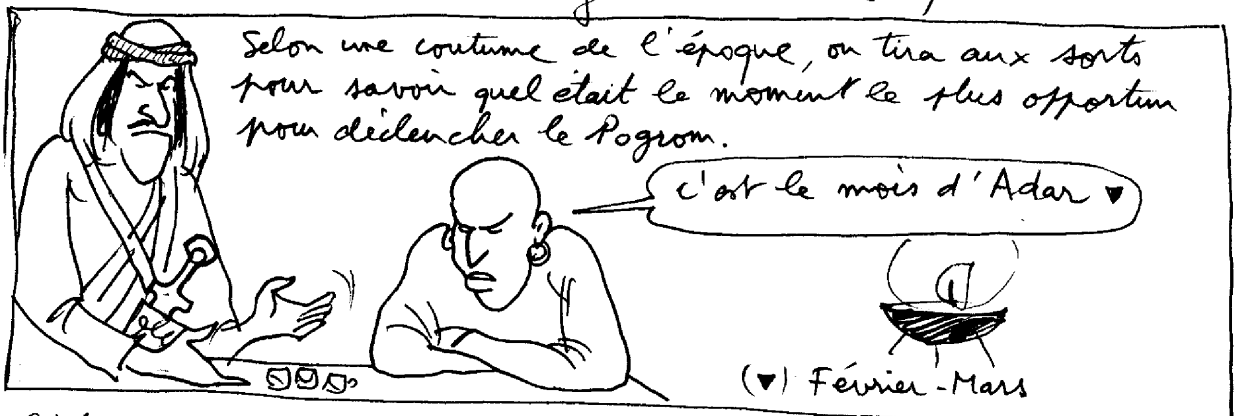 Selon une coutume de l'époque, on tira aux sorts
pour savoir quel était le moment le plus opportun
pour déclencher le Pogrom.
c'est le mois d'Adar ▼
(▼) Février-Mars